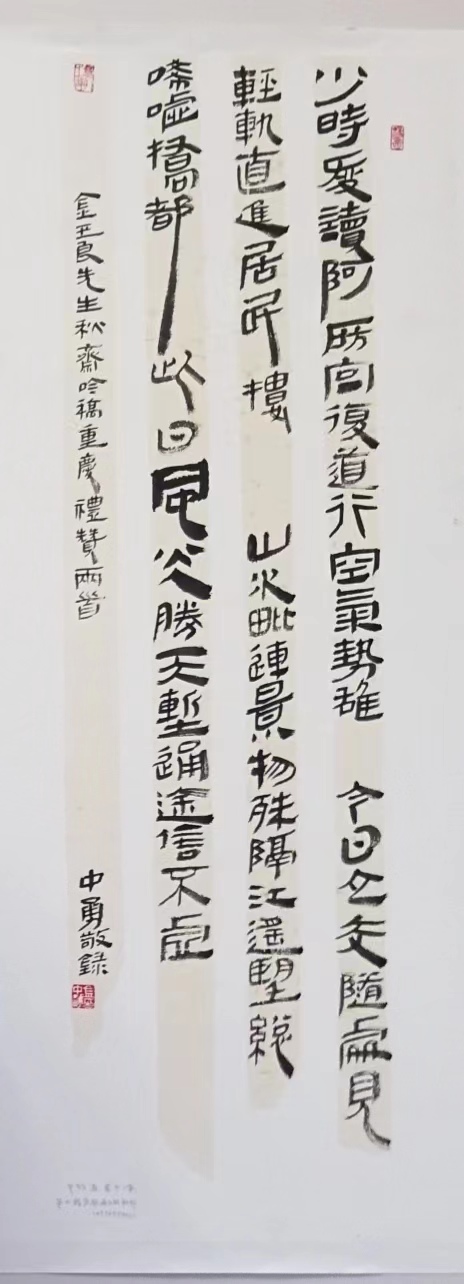 少時愛讀阿房宮復道行空氣勢雄 今日立交隨處見
輕軌直進居民樓 山水毗連景物殊隔江遙望總
唏噓橋都此日風光勝天塹通途信不虛
金正良先生秋齋吟稿重慶禮贊兩首 中勇敬錄